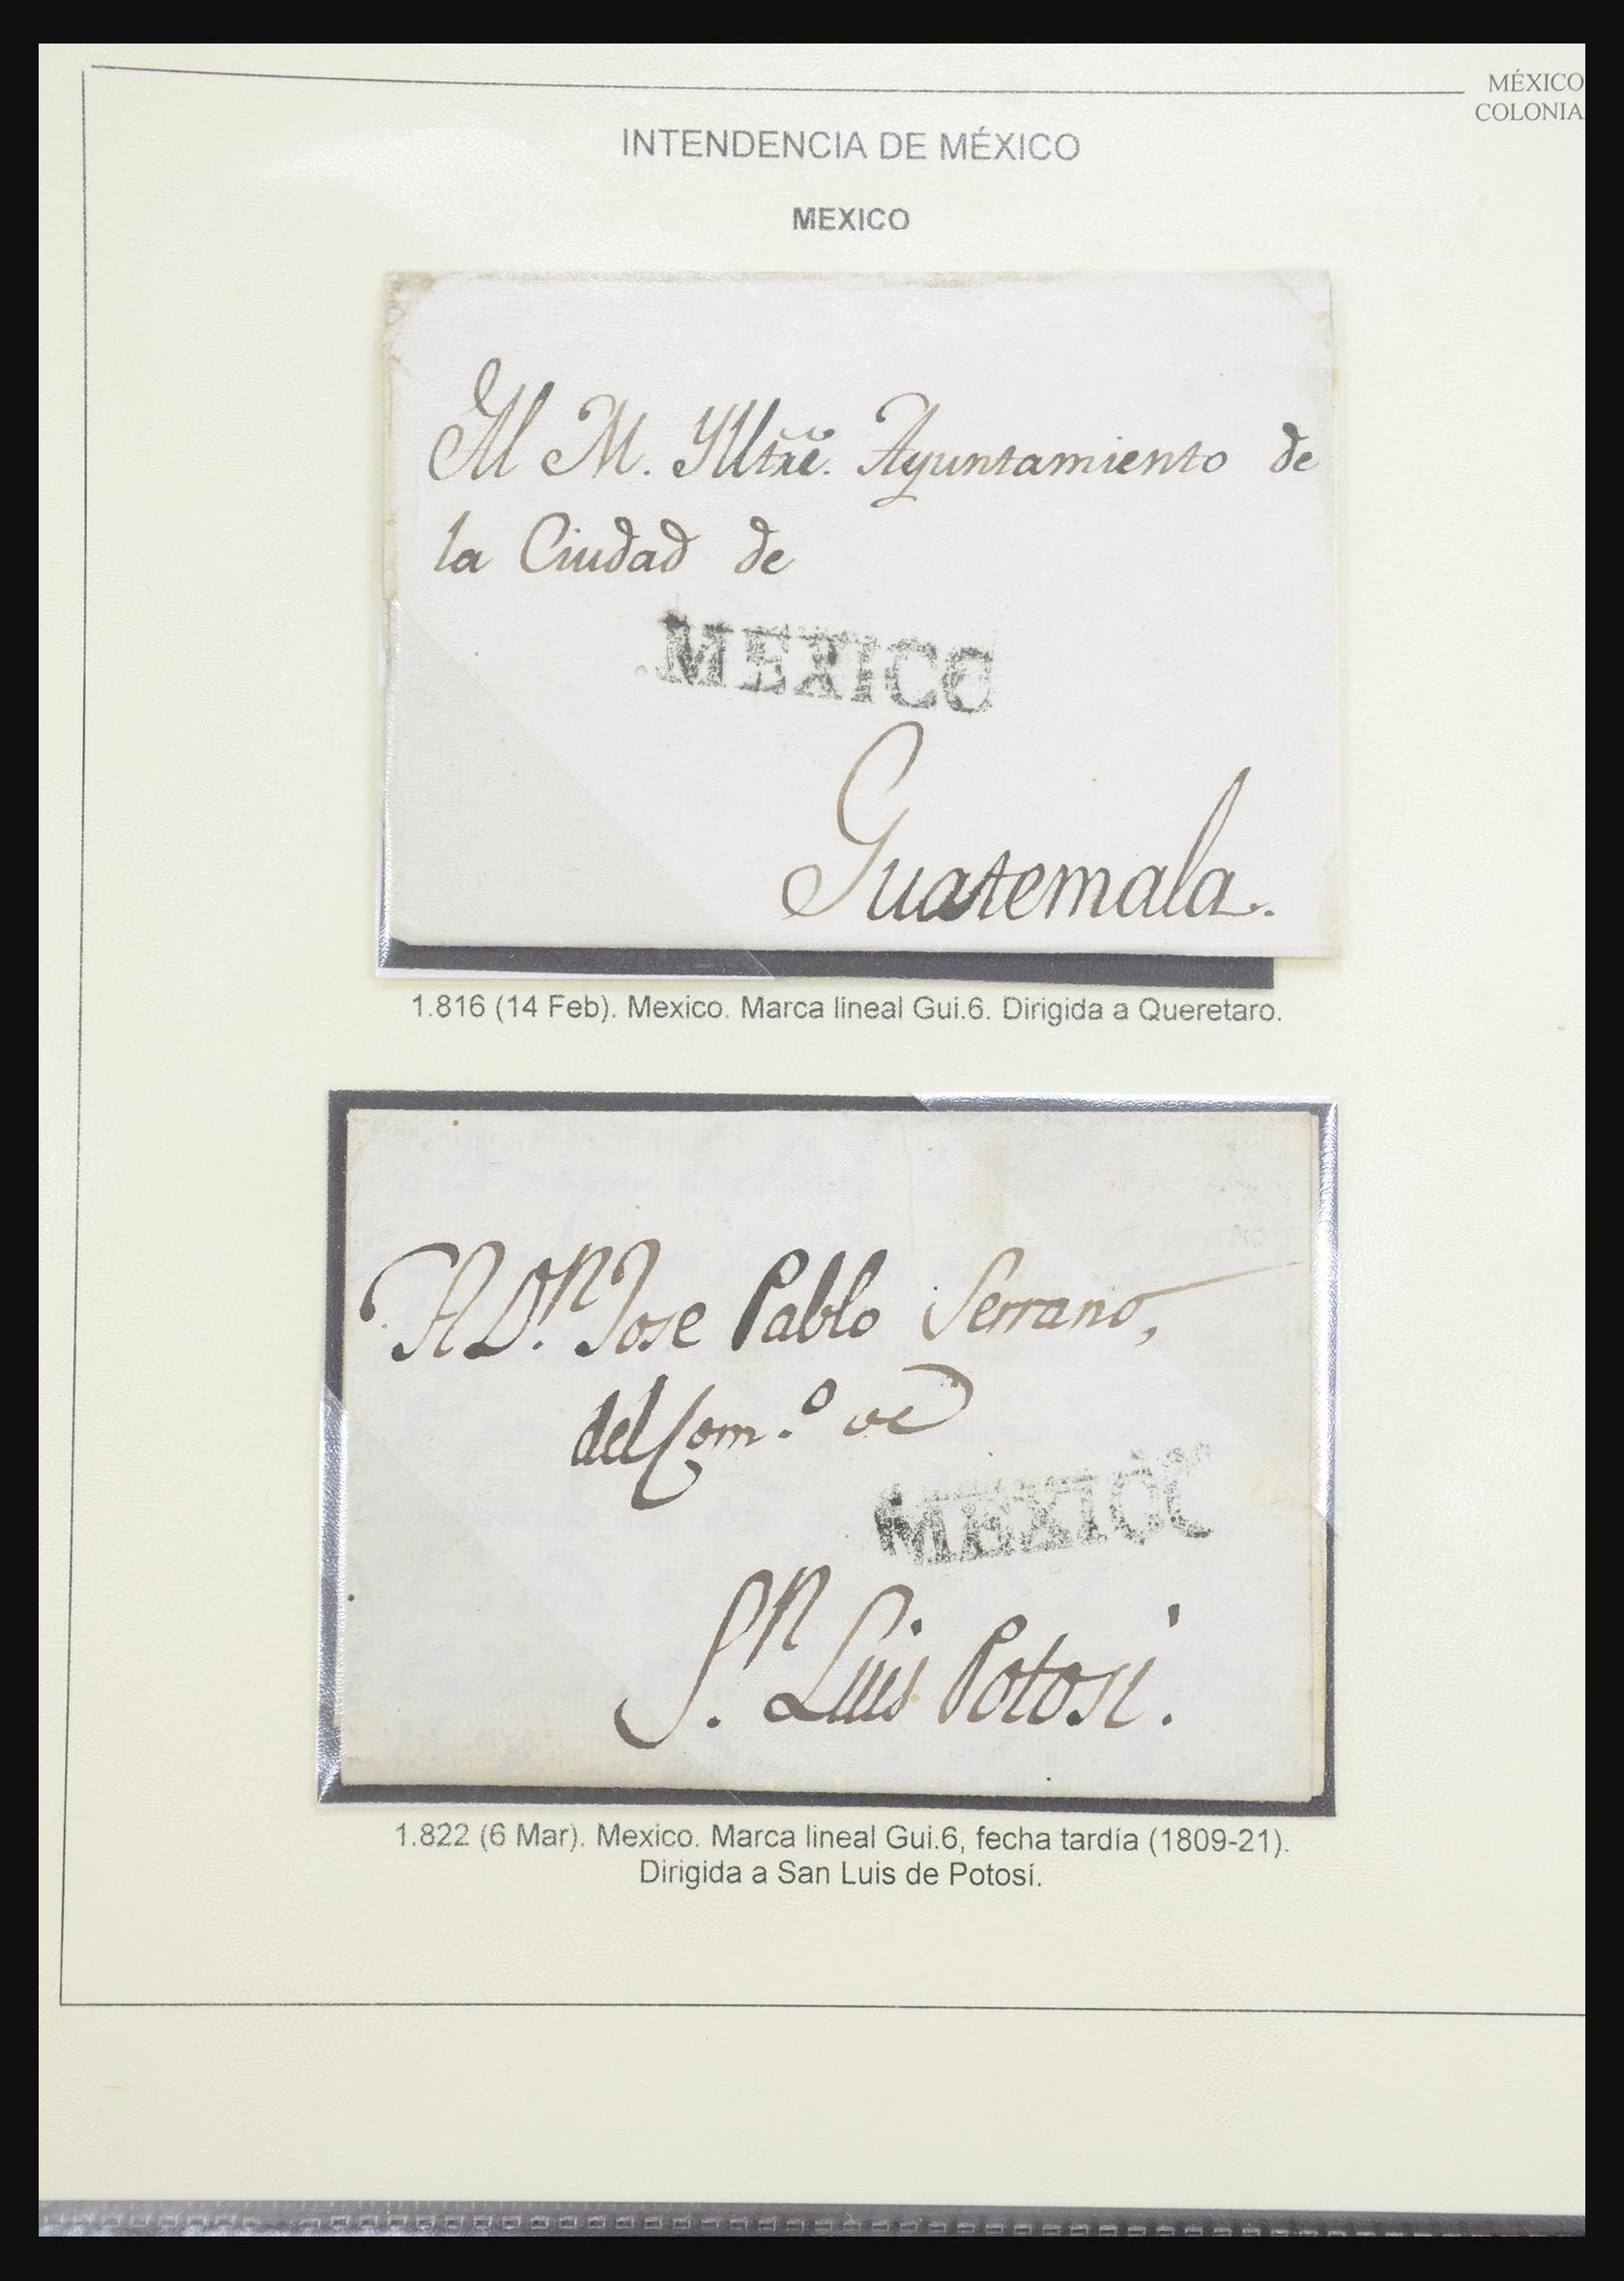 MÉXICO
COLONIA
INTENDENCIA DE MÉXICO
MEXICO
Al M. Ylltre. Ayuntamiento de
la Ciudad de
MEXICO
Guatemala.
1.816 (14 Feb). Mexico. Marca lineal Gui.6. Dirigida a Queretaro.
A D.n Jose Pablo Serrano,
del Com.o de
MEXICO
S.n Luis Potosi.
1.822 (6 Mar). Mexico. Marca lineal Gui.6, fecha tardía (1809-21).
Dirigida a San Luis de Potosí.